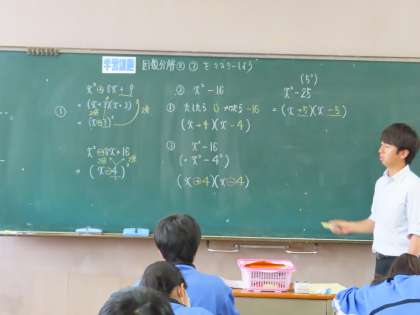 学習課題 因数分解②③をマスターしよう
①
x²+6x+9
=(x+3)(x+3)
=(x+3)²
x²-8x+16
=(x-4)²
② x²-16
① たしたら 0 かけたら -16
(x+4)(x-4)
③ x²-16
(x²-4²)
(x+4)(x-4)
(5²)
x²-25
=(x+5)(x-5)